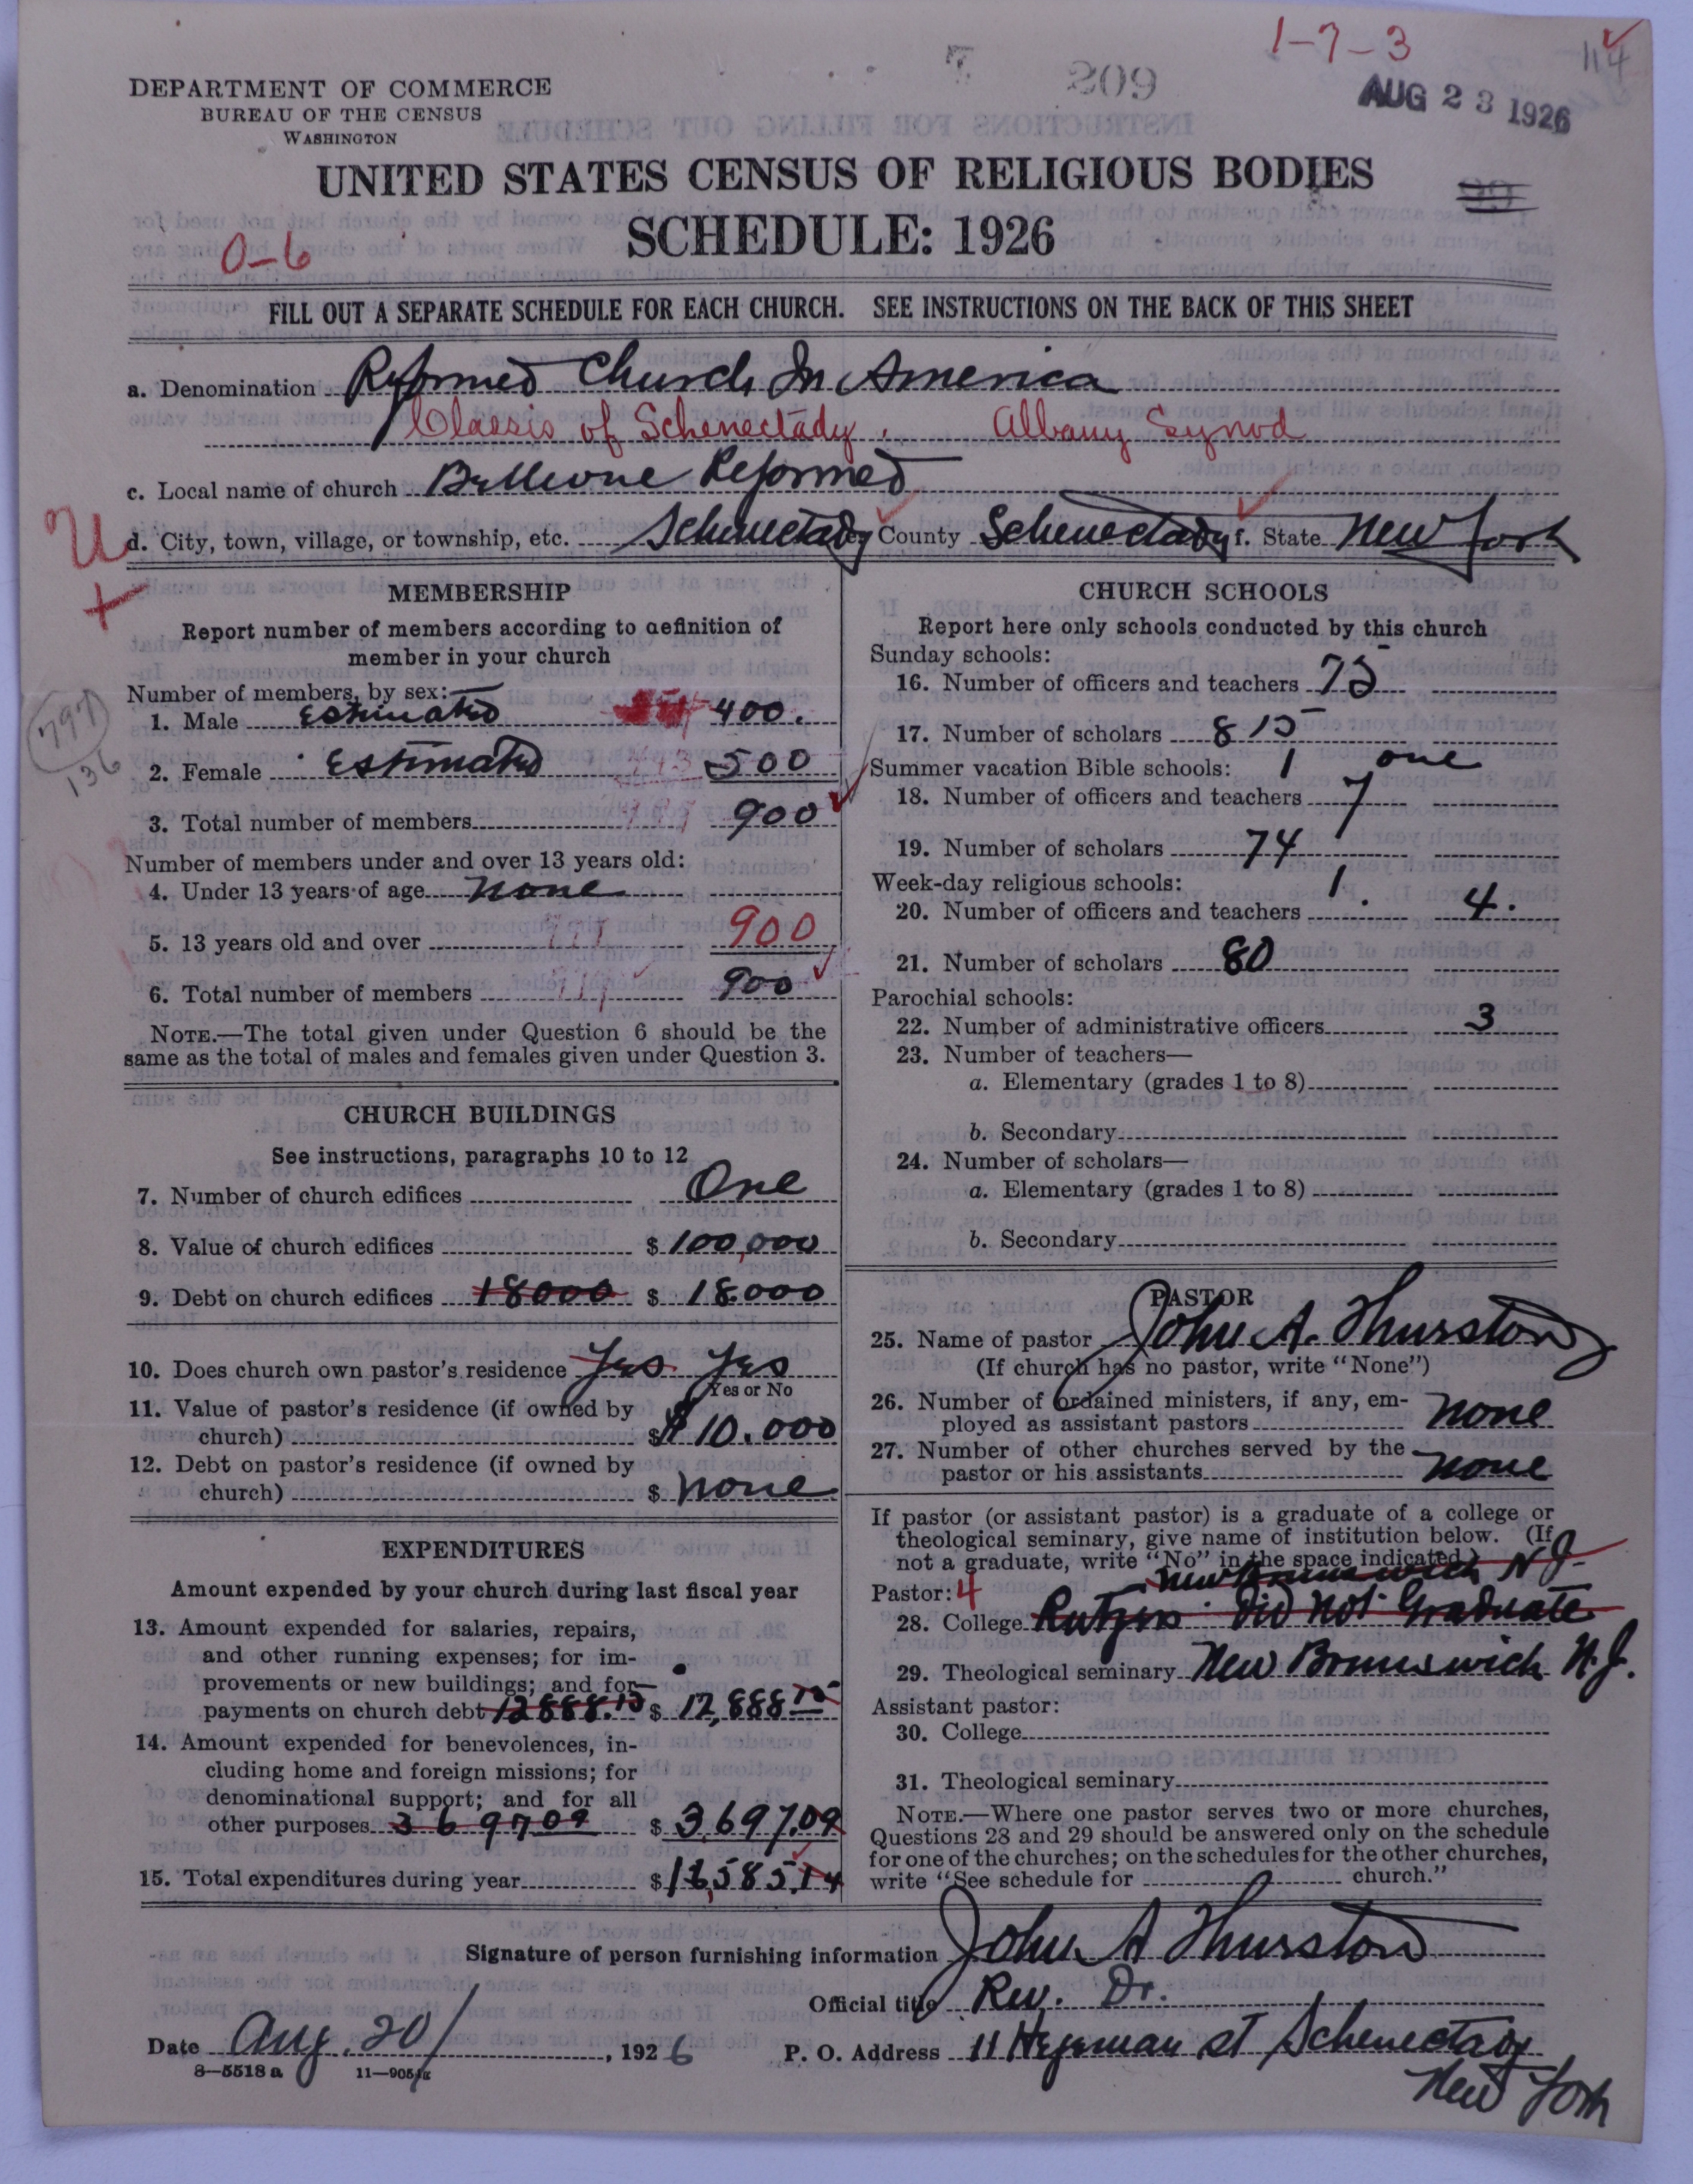 1-7-3
114
209
AUG 23 1926
DEPARTMENT OF COMMERCE
BUREAU OF THE CENSUS
WASHINGTON
UNITED STATES CENSUS OF RELIGIOUS BODIES
SCHEDULE: 1926
0-6
FILL OUT A SEPARATE SCHEDULE FOR EACH CHURCH. SEE INSTRUCTIONS ON THE BACK OF THIS SHEET
a. Denomination Reformed Church In America
Classis of Schenectady. Albany Synod
c. Local name of church Bellevue Reformed
U d. City, town, village, or township, etc. Schenectady County Schenectady f. State New York
+
MEMBERSHIP
Report number of members according to definition of
member in your church
Number of members, by sex:
1. Male Estimated 400.
2. Female Estimated 500
797
136
3. Total number of members 900
Number of members under and over 13 years old:
4. Under 13 years of age none
5. 13 years old and over 900
6. Total number of members 900
NOTE.—The total given under Question 6 should be the
same as the total of males and females given under Question 3.
CHURCH BUILDINGS
See instructions, paragraphs 10 to 12
7. Number of church edifices One
8. Value of church edifices $ 100,000
9. Debt on church edifices 18000 $ 18000
10. Does church own pastor's residence Yes Yes
Yes or No
11. Value of pastor's residence (if owned by
church) $ $10.000
12. Debt on pastor's residence (if owned by
church) $ none
EXPENDITURES
Amount expended by your church during last fiscal year
13. Amount expended for salaries, repairs,
and other running expenses; for im-
provements or new buildings; and for
payments on church debt 12888.15 $ 12,888 15
14. Amount expended for benevolences, in-
cluding home and foreign missions; for
denominational support; and for all
other purposes 3697 09 $ 3697.09
15. Total expenditures during year $ 16,585.14
CHURCH SCHOOLS
Report here only schools conducted by this church
Sunday schools:
16. Number of officers and teachers 75
17. Number of scholars 815
Summer vacation Bible schools: 1 one
18. Number of officers and teachers 7
19. Number of scholars 74
Week-day religious schools: 1.
20. Number of officers and teachers 4.
21. Number of scholars 80
Parochial schools:
22. Number of administrative officers 3
23. Number of teachers—
a. Elementary (grades 1 to 8)
b. Secondary
24. Number of scholars—
a. Elementary (grades 1 to 8)
b. Secondary
PASTOR
25. Name of pastor John A. Thurston
(If church has no pastor, write "None")
26. Number of ordained ministers, if any, em-
ployed as assistant pastors none
27. Number of other churches served by the
pastor or his assistants none
If pastor (or assistant pastor) is a graduate of a college or
theological seminary, give name of institution below. (If
not a graduate, write "No" in the space indicated.)
New Brunswick N J-
Pastor: 4
28. College Rutgers Did not Graduate
29. Theological seminary New Brunswick N.J.
Assistant pastor:
30. College
31. Theological seminary
NOTE.—Where one pastor serves two or more churches,
Questions 28 and 29 should be answered only on the schedule
for one of the churches; on the schedules for the other churches,
write "See schedule for church."
Signature of person furnishing information John A Thurston
Official title Rev. Dr.
Date Aug. 20, 1926
P. O. Address 11 Hegeman St Schenectady
New York
8—5518 a